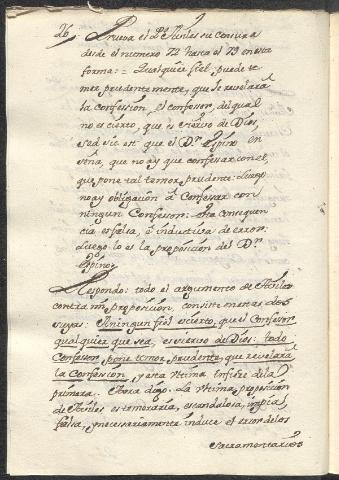 26. Prueva el P. Aviles su censura
desde el numero 72 hasta el 79 en esta
forma: = Qualquier fiel, puede te
mer prudentemente, que le revelarà
la confession, el confessor, del qual
no es cierto, que es siervo de Dios,
sed sic est que el D.r Espino en
seña, que no ay que confessar con el,
que pone tal temor prudente: Luego
no ay obligacion à confessar con
ningun Confessor: esta consequen
cia es falsa, è inductiva de error:
Luego lo es la proposicion del D.r
Espino.
Respondo: todo el argumento de Aviles
contra mi proposicion, consiste en estas dos
suyas: A ningun fiel es cierto, que el Confessor
qualquier que sea, es siervo de Dios: todo
Confessor, pone temor prudente, que revelarà
la Confession, y esta ultima infiere de la
primera. Aora digo. La ultima proposicion
de Aviles es temeraria, escandalosa, impia,
falsa, y necessariamente induce el error de los
Sacramentarios